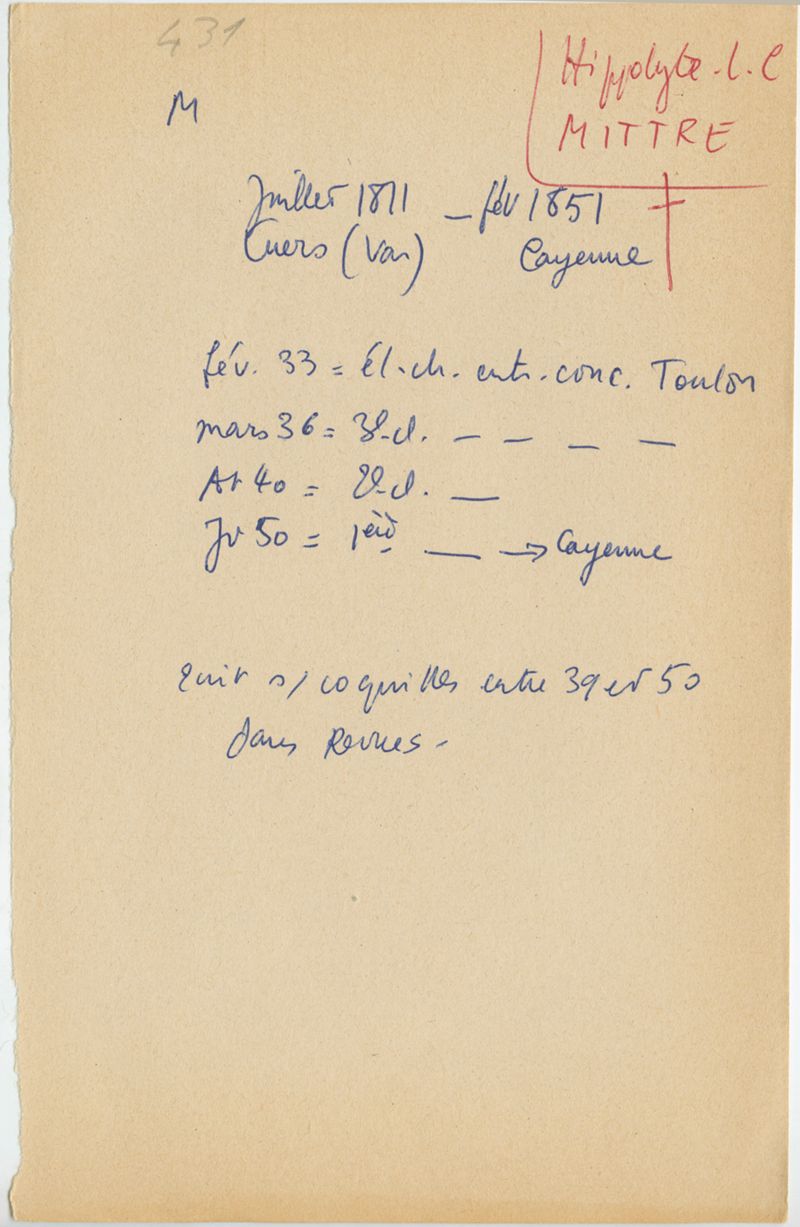 431
Hippolyte. L. C
MITTRE
M
Juillet 1811 – fév 1851
Cuers (Var) Cayenne
fév. 33 = él. ch. entr. conc. Toulon
mars 36 = 3e cl. — — — —
At 40 = 2e cl. —
Jt 50 = 1ère — → Cayenne
Ecrit s/ coquilles entre 39 et 50
dans Revues -